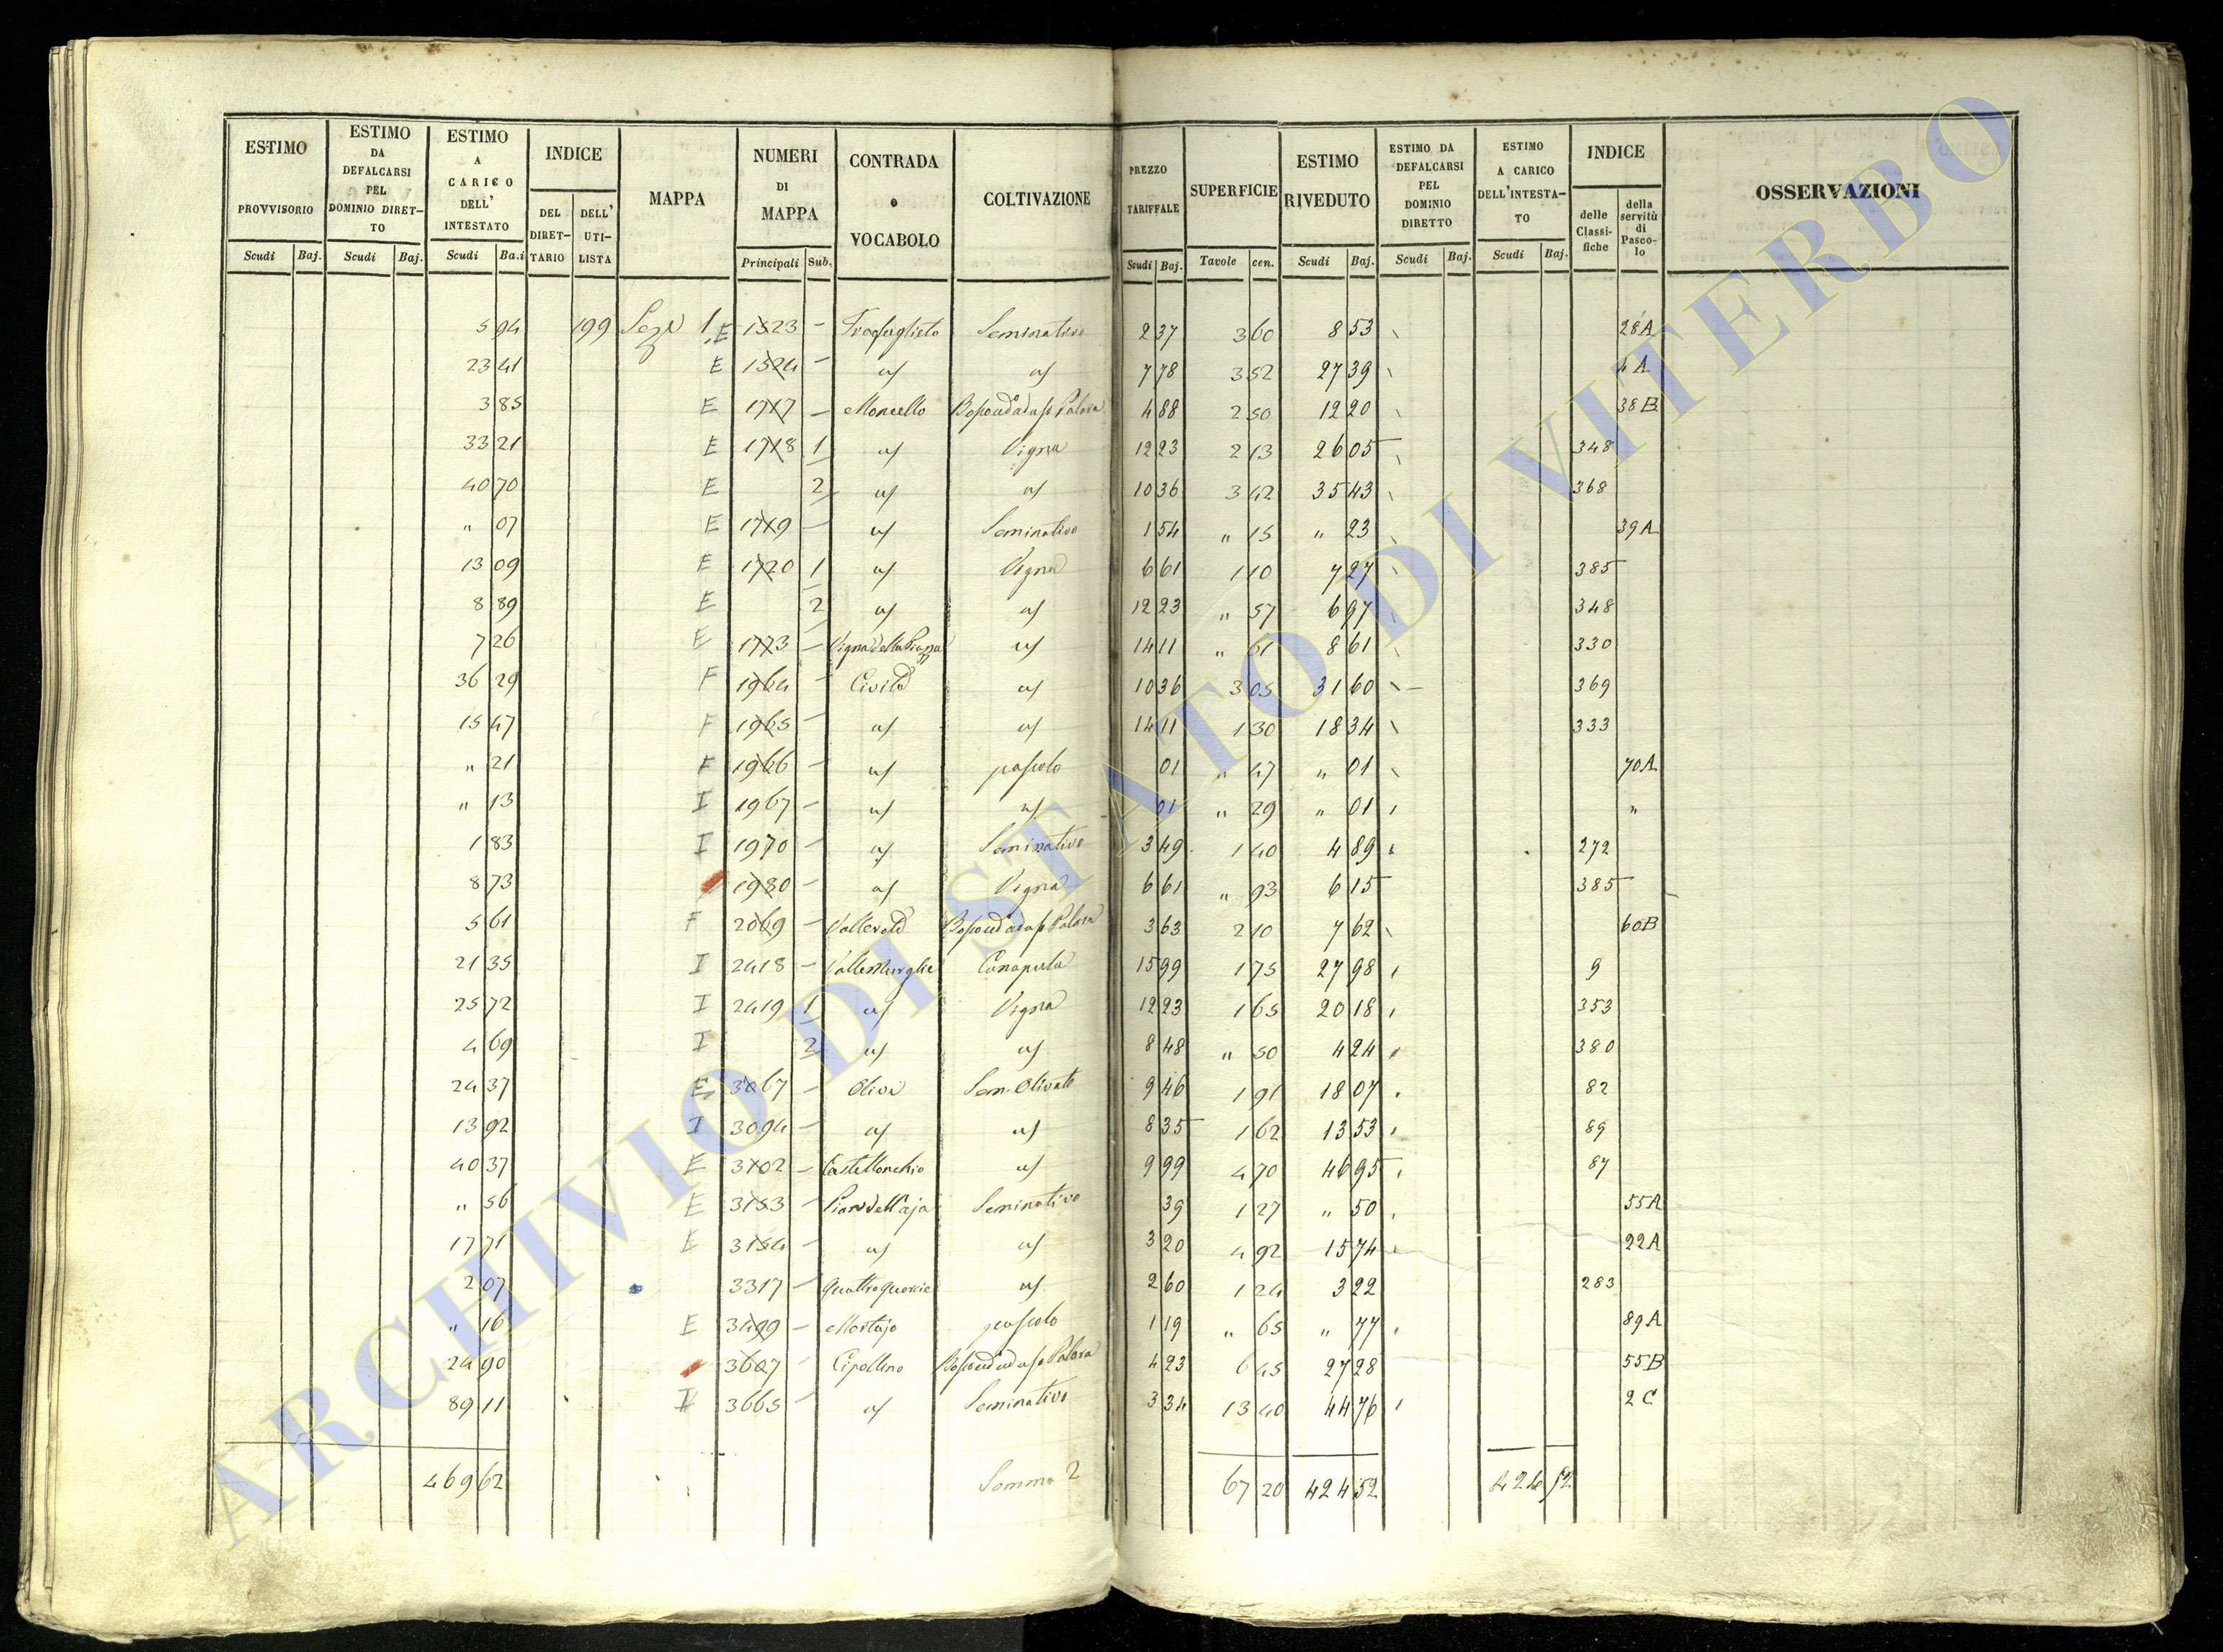 ESTIMO PROVVISORIO | ESTIMO DA DEFALCARSI PEL DOMINIO DIRETTO | ESTIMO A CARICO DELL' INTESTATO | INDICE | MAPPA | NUMERI DI MAPPA | CONTRADA o VOCABOLO | COLTIVAZIONE | PREZZO TARIFFALE | SUPERFICIE | ESTIMO RIVEDUTO | ESTIMO DA DEFALCARSI PEL DOMINIO DIRETTO | ESTIMO A CARICO DELL'INTESTATO | INDICE | OSSERVAZIONI
DEL DIRETTARIO | DELL' UTILISTA | delle Classifiche | della servitù di Pascolo
Scudi | Baj. | Scudi | Baj. | Scudi | Ba.i | Principali | Sub. | Scudi | Baj. | Tavole | cen. | Scudi | Baj. | Scudi | Baj. | Scudi | Baj.
5 94 199 1 E 1523 – Seminativo 2 37 3 60 8 53 28A
23 41 E 1524 – 7 78 3 52 27 39 4A
3 85 E 1717 – Moncello 4 88 2 50 12 20 38B
33 21 E 1718 1 Vigna 12 23 2 13 26 05 348
40 70 E 2 10 36 3 42 35 43 368
" 07 E 1719 – Seminativo 1 54 " 15 " 23 39A
13 09 E 1720 1 Vigna 6 61 1 10 7 27 385
8 89 E 2 12 23 " 57 6 97 348
7 26 E 1773 – Vigna della Piazza 14 11 " 61 8 61 330
36 29 F 1964 – 10 36 3 05 31 60 369
15 47 F 1965 – 14 11 1 30 18 34 333
" 21 F 1966 – pascolo 01 " 47 " 01 70A
" 13 I 1967 – 01 " 29 " 01 "
1 83 I 1970 – Seminativo 3 49 1 40 4 89 272
8 73 1980 – Vigna 6 61 " 93 6 15 385
5 61 F 2069 – 3 63 2 10 7 62 60B
21 35 I 2418 – 15 99 1 75 27 98 9
25 72 I 2419 1 Vigna 12 23 1 65 20 18 353
4 69 I 2 8 48 " 50 4 24 380
24 37 E 3067 – Sem. Olivato 9 46 1 91 18 07 82
13 92 I 3094 – 8 35 1 62 13 53 89
40 37 E 3102 – 9 99 4 70 46 95 87
" 56 E 3153 – Seminativo 39 1 27 " 50 55A
17 71 E 3154 – 3 20 4 92 15 74 22A
2 07 3317 – 2 60 1 24 3 22 283
" 16 E 3499 – pascolo 1 19 " 65 " 77 89A
24 90 3607 – Cipollino 4 23 6 45 27 28 55B
89 11 3665 – Seminativo 3 34 13 40 44 76 2C
469 62 Somma 2 67 20 424 52 424 52
ARCHIVIO DI STATO DI VITERBO